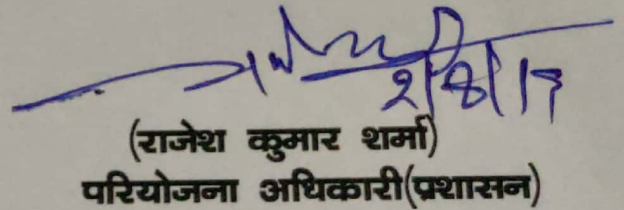 2/8/17
(राजेश कुमार शर्मा)
परियोजना अधिकारी(प्रशासन)